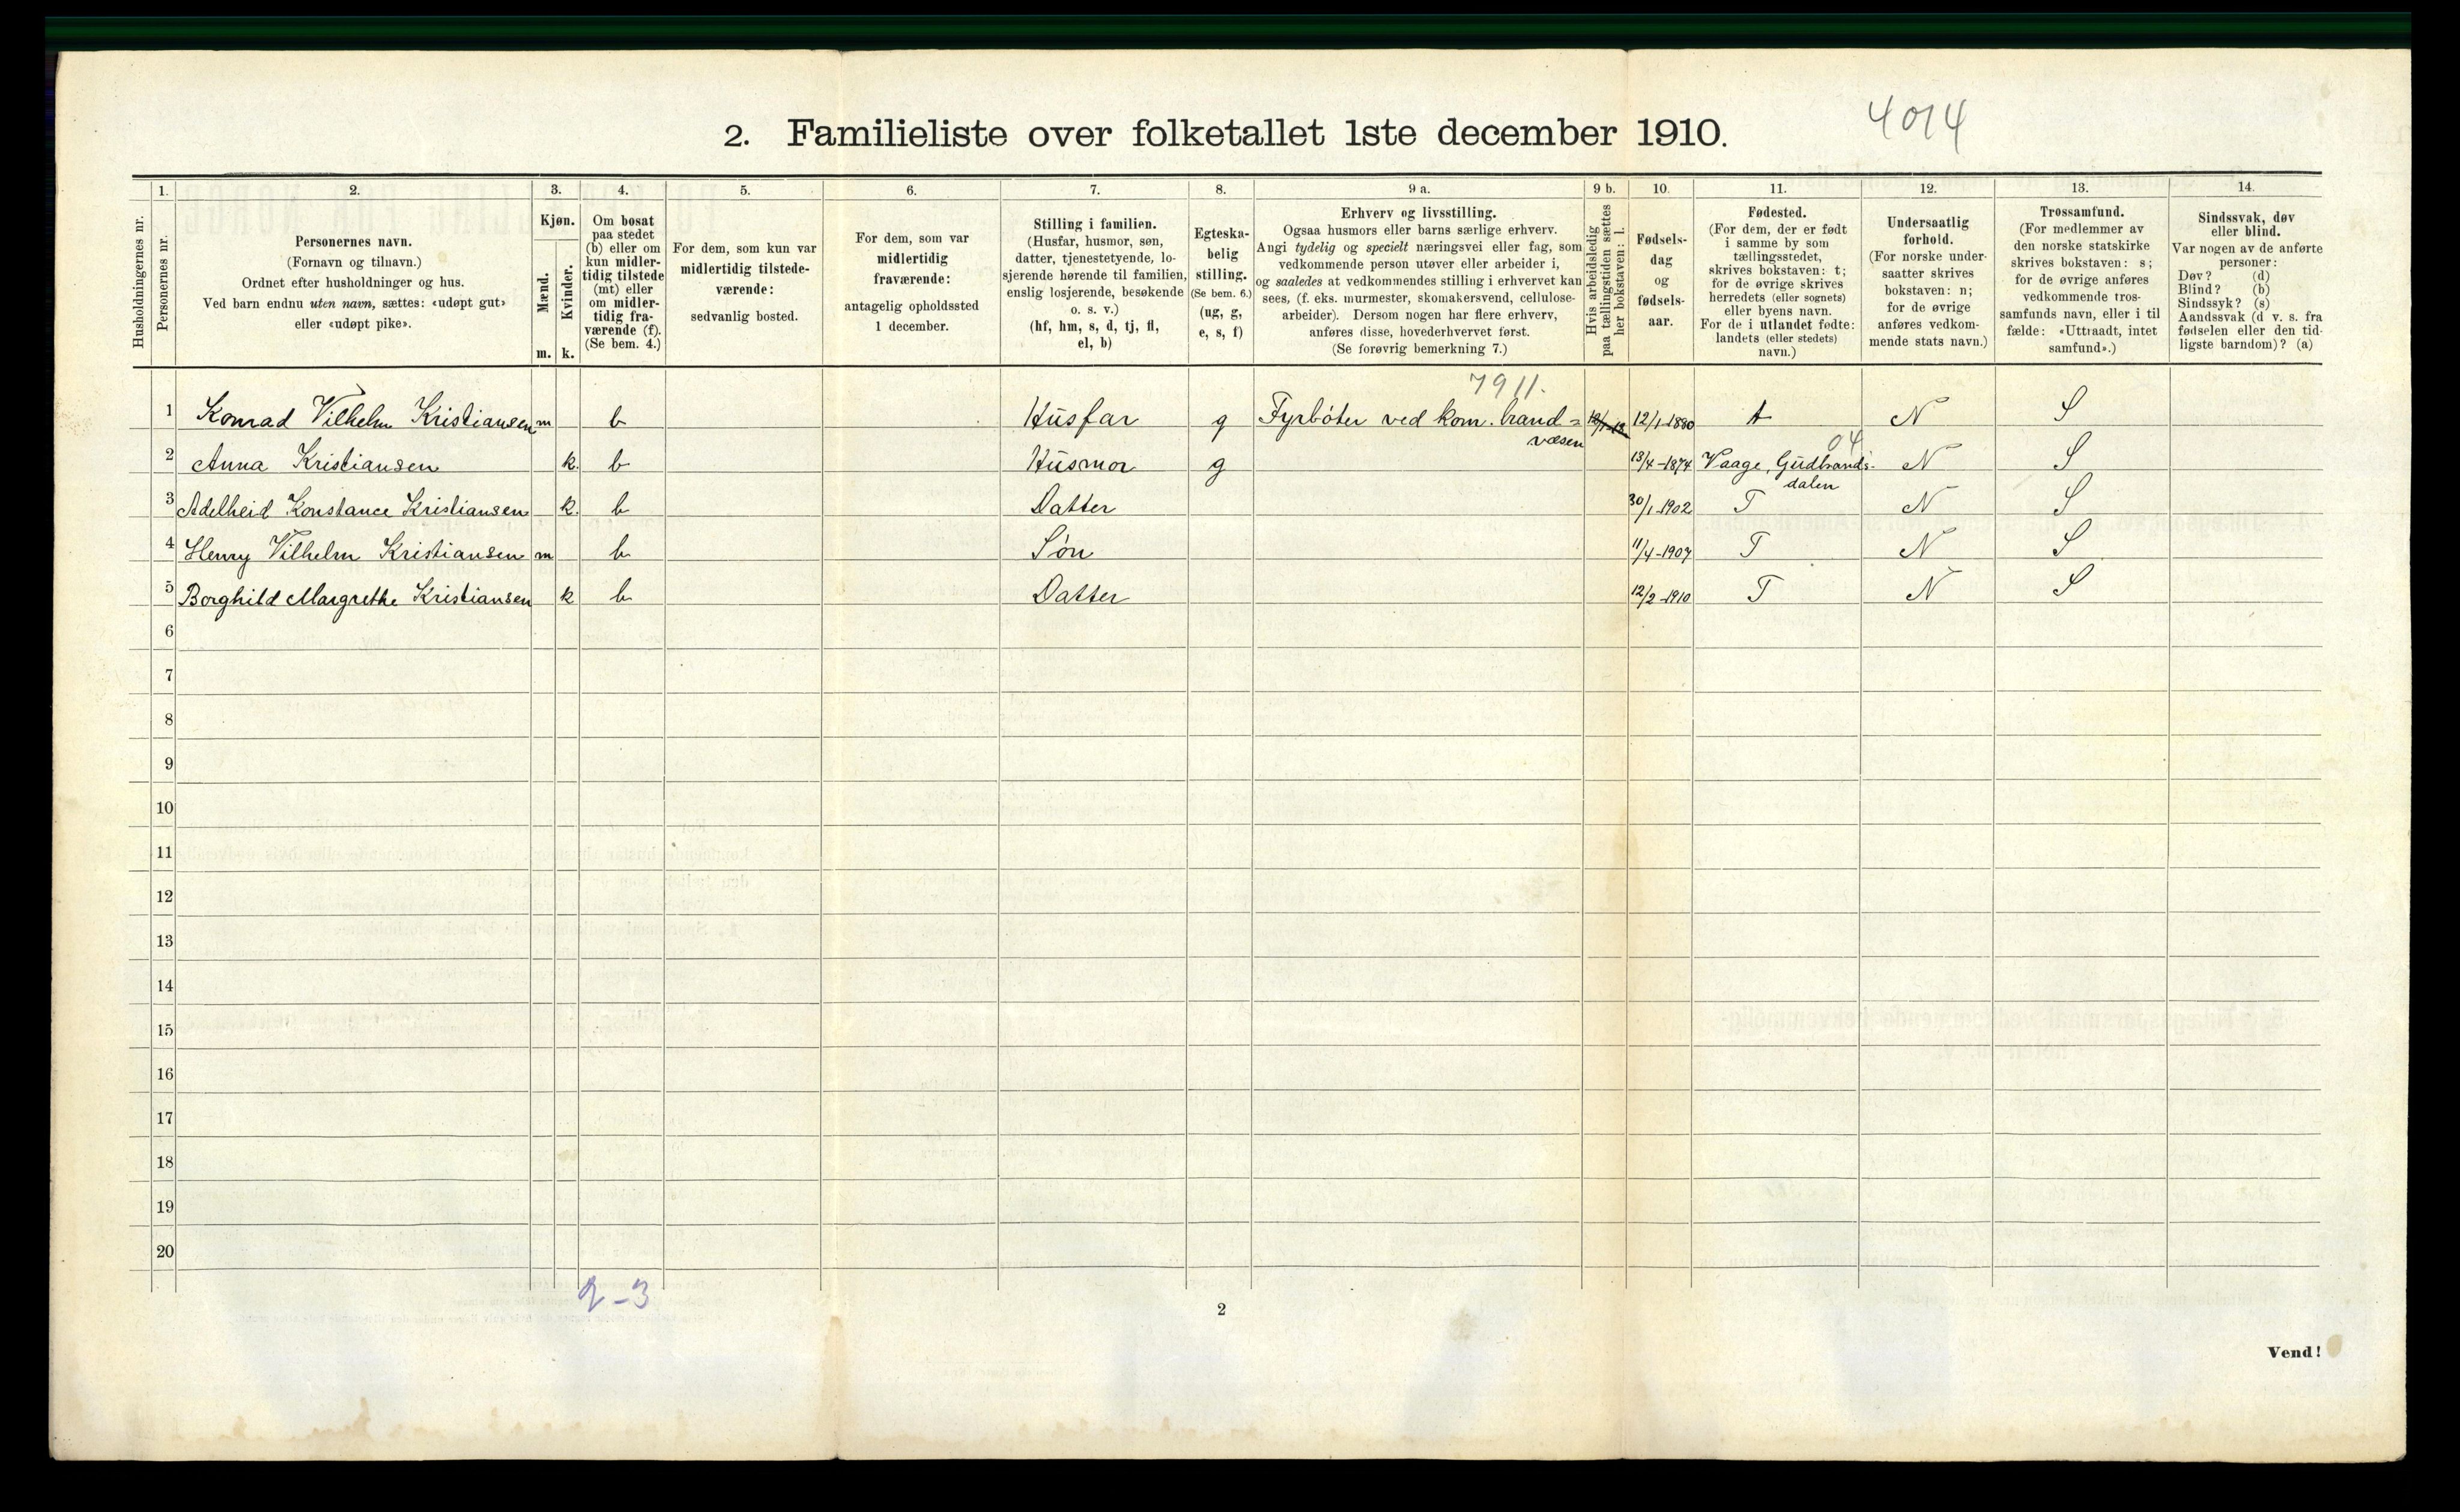 4014
2. Familieliste over folketallet 1ste december 1910.
Husholdningernes nr.
1.
Personernes nr.
2.
Personernes navn.
(Fornavn og tilnavn.)
Ordnet efter husholdninger og hus.
Ved barn endnu uten navn, sættes: «udøpt gut»
eller «udøpt pike».
3.
Kjøn.
Mænd.
Kvinder.
m. k.
4.
Om bosat
paa stedet
(b) eller om
kun midler-
tidig tilstede
(mt) eller
om midler-
tidig fra-
værende (f).
(Se bem. 4.)
5.
For dem, som kun var
midlertidig tilstede-
værende:
sedvanlig bosted.
6.
For dem, som var
midlertidig
fraværende:
antagelig opholdssted
1 december.
7.
Stilling i familien.
(Husfar, husmor, søn,
datter, tjenestetyende, lo-
sjerende hørende til familien,
enslig losjerende, besøkende
o. s. v.)
(hf, hm, s, d, tj, fl,
el, b)
8.
Egteska-
belig
stilling.
(Se bem. 6.)
(ug, g,
e, s, f)
9 a.
Erhverv og livsstilling.
Ogsaa husmors eller barns særlige erhverv.
Angi tydelig og specielt næringsvei eller fag, som
vedkommende person utøver eller arbeider i,
og saaledes at vedkommendes stilling i erhvervet kan
sees, (f. eks. murmester, skomakersvend, cellulose-
arbeider). Dersom nogen har flere erhverv,
anføres disse, hovederhvervet først.
(Se forøvrig bemerkning 7.)
9 b.
Hvis arbeidsledig
paa tællingstiden sættes
her bokstaven: l.
10.
Fødsels-
dag
og
fødsels-
aar.
11.
Fødested.
(For dem, der er født
i samme by som
tællingsstedet,
skrives bokstaven: t;
for de øvrige skrives
herredets (eller sognets)
eller byens navn.
For de i utlandet fødte:
landets (eller stedets)
navn.)
12.
Undersaatlig
forhold.
(For norske under-
saatter skrives
bokstaven: n;
for de øvrige
anføres vedkom-
mende stats navn.)
13.
Trossamfund.
(For medlemmer av
den norske statskirke
skrives bokstaven: s;
for de øvrige anføres
vedkommende tros-
samfunds navn, eller i til
fælde: «Uttraadt, intet
samfund».)
14.
Sindssvak, døv
eller blind.
Var nogen av de anførte
personer:
Døv? (d)
Blind? (b)
Sindssyk? (s)
Aandssvak (d v. s. fra
fødselen eller den tid-
ligste barndom)? (a)
7911.
1 Konrad Vilhelm Kristiansen m b Husfar g Fyrbøter ved kom. brand= 12/1-1880 t N S
væsen
04
2 Anna Kristiansen k. b Husmor g 13/4-1874 Vaage, Gudbrands- N S
dalen
3 Adelheid Konstance Kristiansen k. b Datter 30/1-1902 T N S
4 Henry Vilhelm Kristiansen m b Søn 11/4-1907 T N S
5 Borghild Margrethe Kristiansen k b Datter 12/2-1910 T N S
6
7
8
9
10
11
12
13
14
15
16
17
18
19
20
2-3
2
Vend!